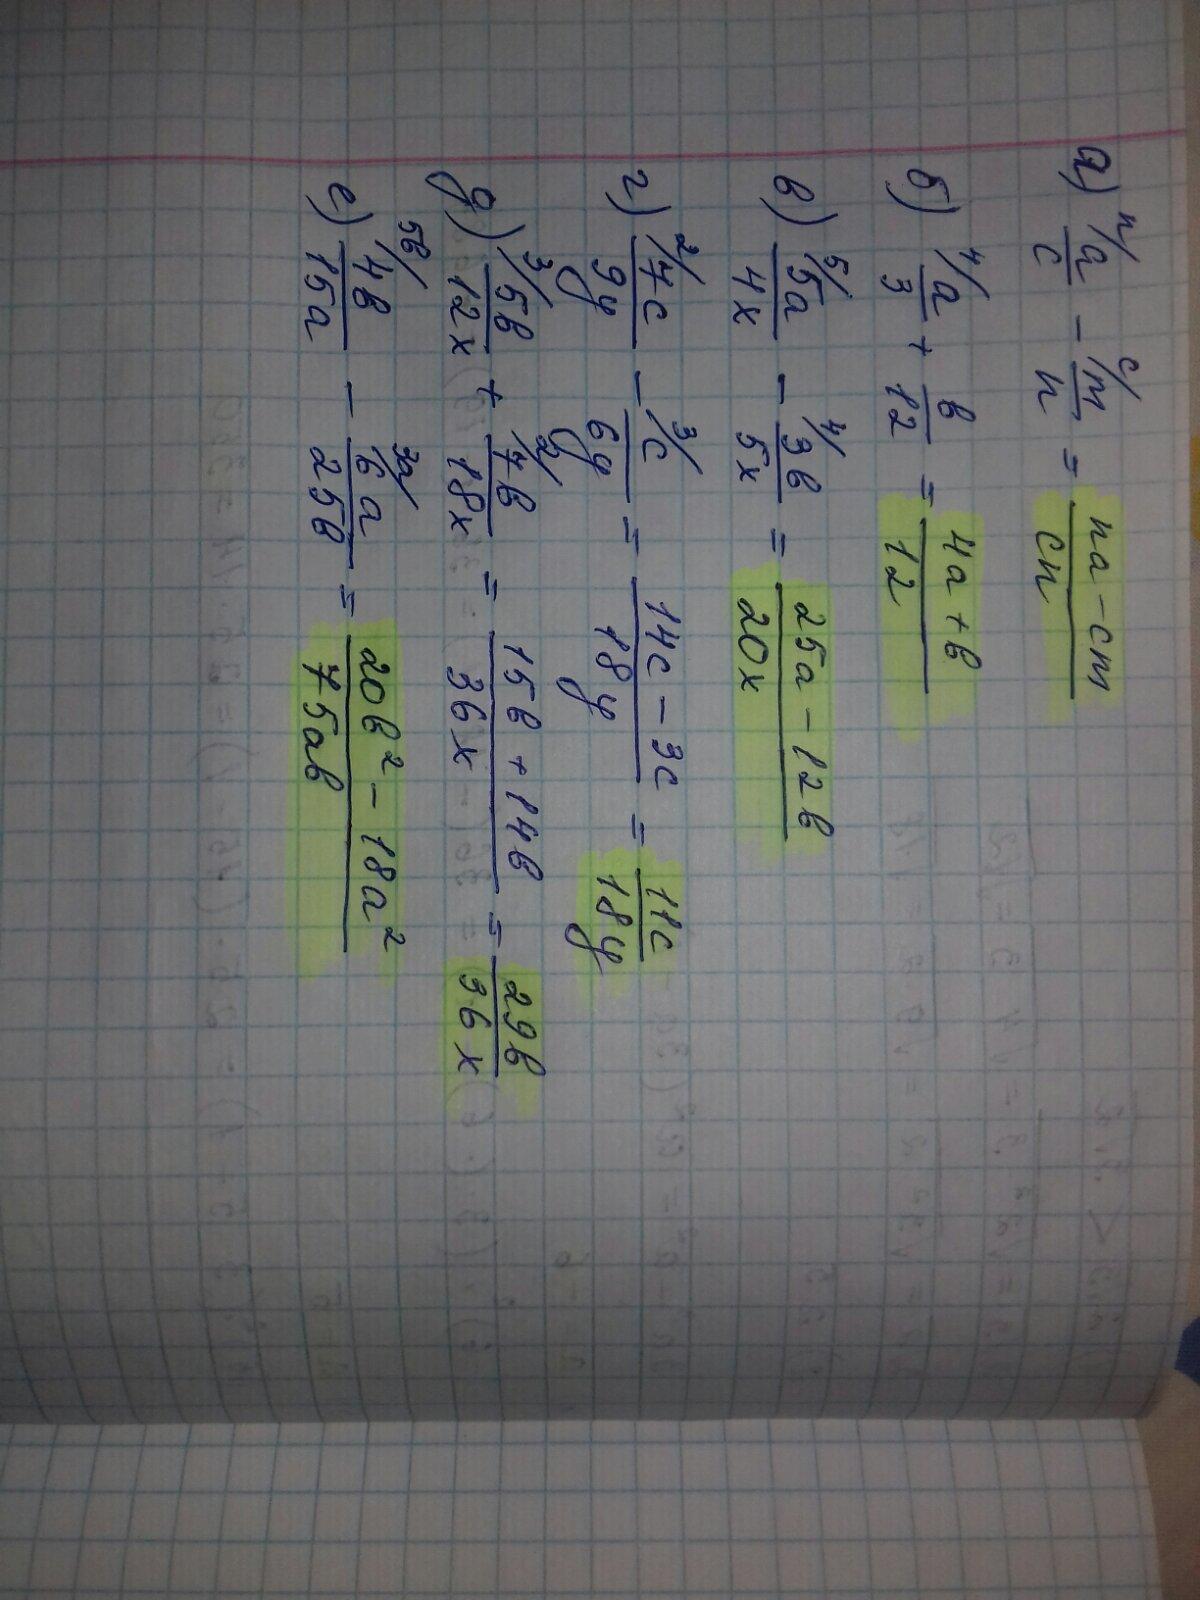 а) ⁿ/a/c - ᶜ/m/n = na - cm/cn
б) ⁴/a/3 + b/12 = 4a + b/12
в) ⁵/5a/4x - ⁴/3b/5x = 25a - 12b/20x
г) ²/7c/9y - ³/c/6y = 14c - 3c/18y = 11c/18y
д) ³/5b/12x + ²/7b/18x = 15b + 14b/36x = 29b/36x
е) ⁵ᵇ/4b/15a - ³ᵃ/6a/25b = 20b² - 18a²/75ab